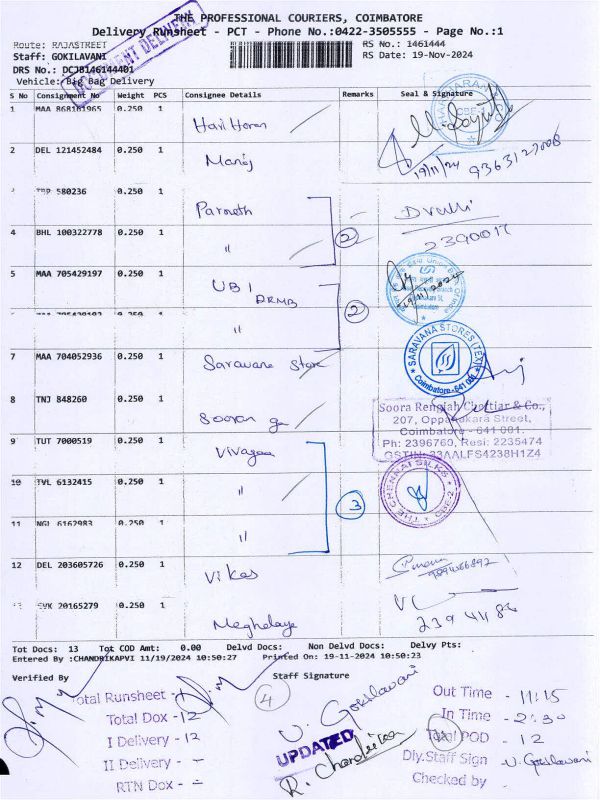 THE PROFESSIONAL COURIERS, COIMBATORE
Delivery Runsheet - PCT - Phone No.:0422-3505555 - Page No.:1
Route: RAJASTREET
RS No.: 1461444
Staff: GOKILAVANI
RS Date: 19-Nov-2024
DRS No.: DCJB146144401
Vehicle: Big Bag Delivery
S No Consignment No Weight PCS Consignee Details Remarks Seal & Signature
1 MAA 868161965 0.250 1 Hari Haran
2 DEL 121452484 0.250 1 Manoj
19/11/24 9363127008
580236 0.250 1 Parneth
2390017
4 BHL 100322778 0.250 1 "
2
5 MAA 705429197 0.250 1 UBI
DRMB
0.250 1 "
2
7 MAA 704052936 0.250 1 Saravana Store
SARAVANA STORES (TEX)
Coimbatore - 641 001.
8 TNJ 848260 0.250 1 Sooran
Soora Rengiah Chettiar & Co.,
207, Oppanakara Street,
Coimbatore - 641 001.
Ph: 2396760, Resi: 2235474
GSTIN: 33AALFS4238H1Z4
9 TUT 7000519 0.250 1 Vivagaa
10 TVL 6132415 0.250 1 "
3
THE CHENNAI SILKS
CBE-2
11 NGL 6162983 0.250 1 "
12 DEL 203605726 0.250 1 Vikas
SVK 20165279 0.250 1 Meghalaya
Tot Docs: 13 Tot COD Amt: 0.00 Delvd Docs: Non Delvd Docs: Delvy Pts:
Entered By :CHANDRIKAPVI 11/19/2024 10:50:27 Printed On: 19-11-2024 10:50:23
Verified By
Staff Signature
Total Runsheet -
4
V. Gokilavani
Out Time - 11:15
Total Dox - 12
In Time - 2:30
I Delivery - 12
UPDATED
Total POD - 12
II Delivery - -
R. Chandrika
Dly.Staff Sign - V. Gokilavani
RTN Dox - -
Checked by -